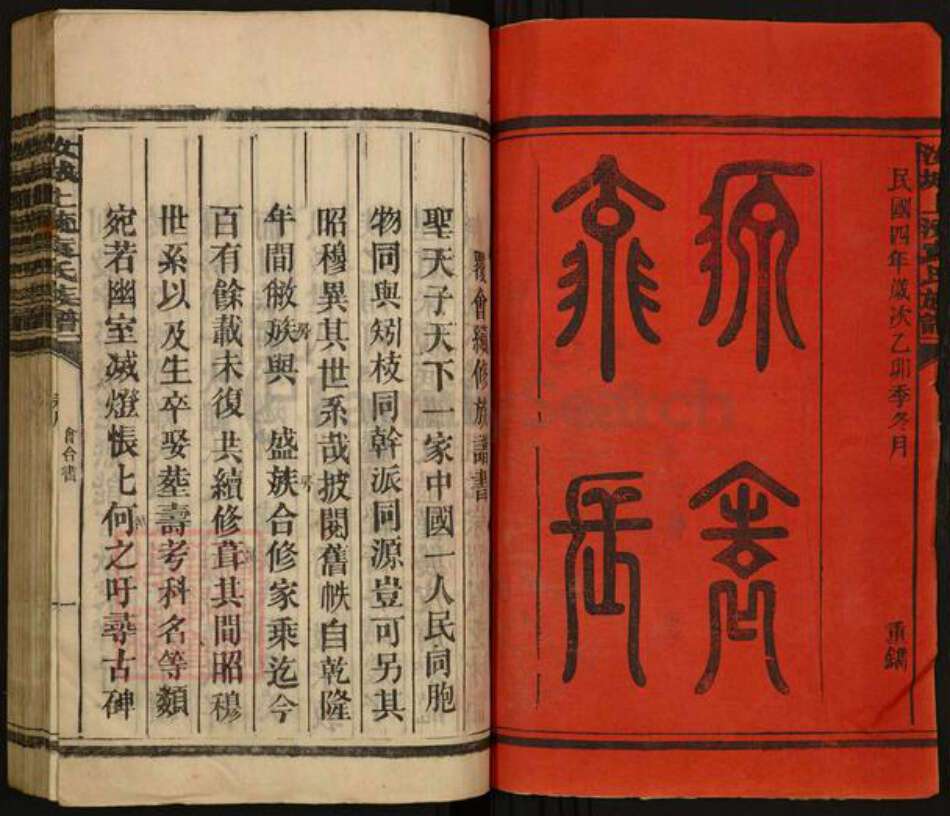 民國四年歲次乙卯季冬月
重鐫
源遠
流長
覆會續修族譜書
聖天子天下一家中國一人民同胞
物同與矧枝同幹派同源豈可另其
昭穆異其世系哉披閱舊帙自乾隆
年間敝族與 盛族合修家乘迄今
百有餘載未復共續修葺其間昭穆
世系以及生卒娶塟壽考科名等類
宛若幽室滅燈悵七何之吁尋古碑
會合書
一